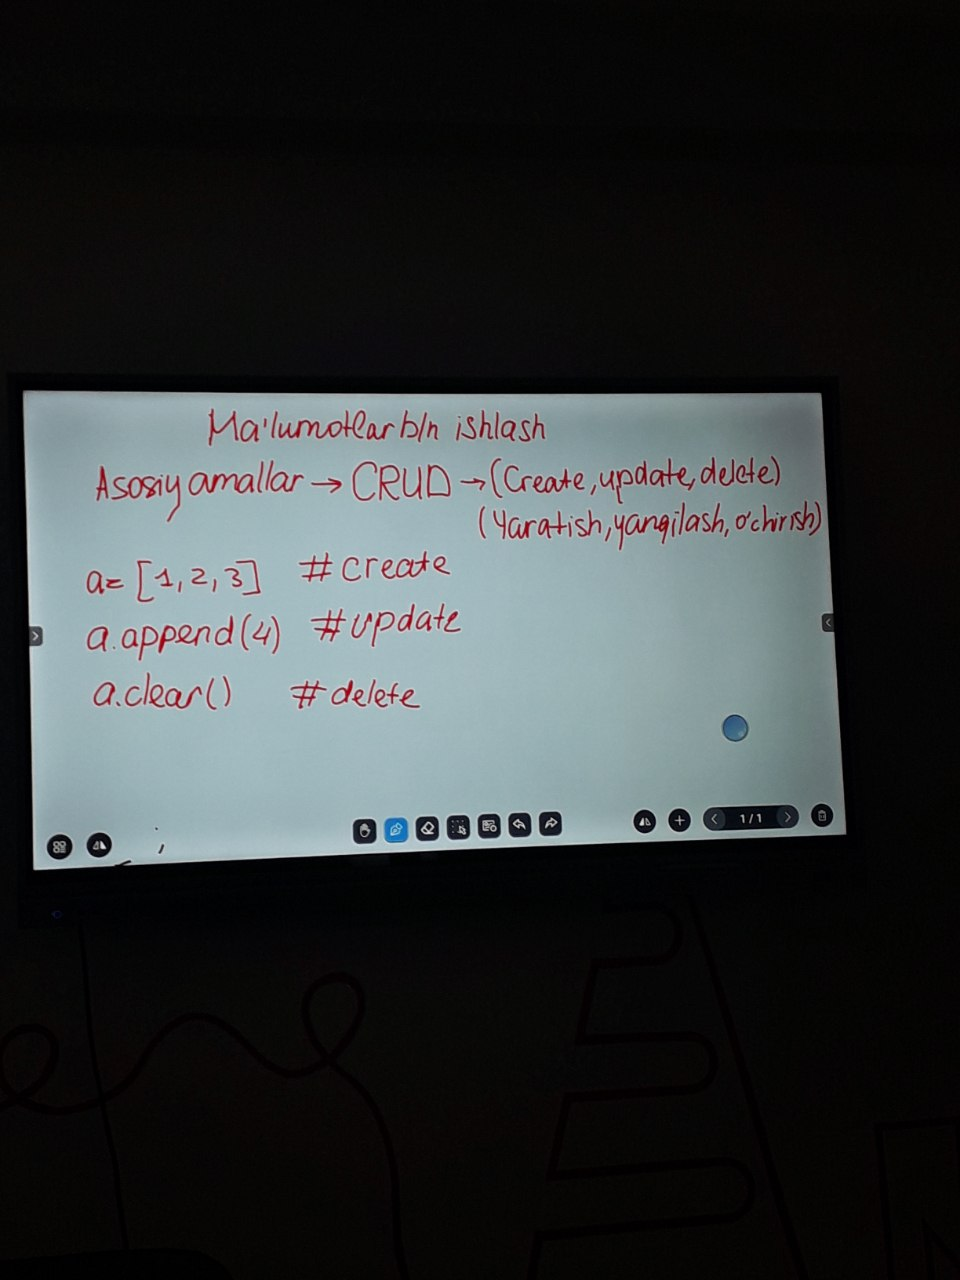 Ma'lumotlar b/n ishlash
Asosiy amallar → CRUD → (Create, update, delete)
(Yaratish, yangilash, o'chirish)
a= [1, 2, 3] # create
a.append(4) # update
a.clear() # delete
1/1